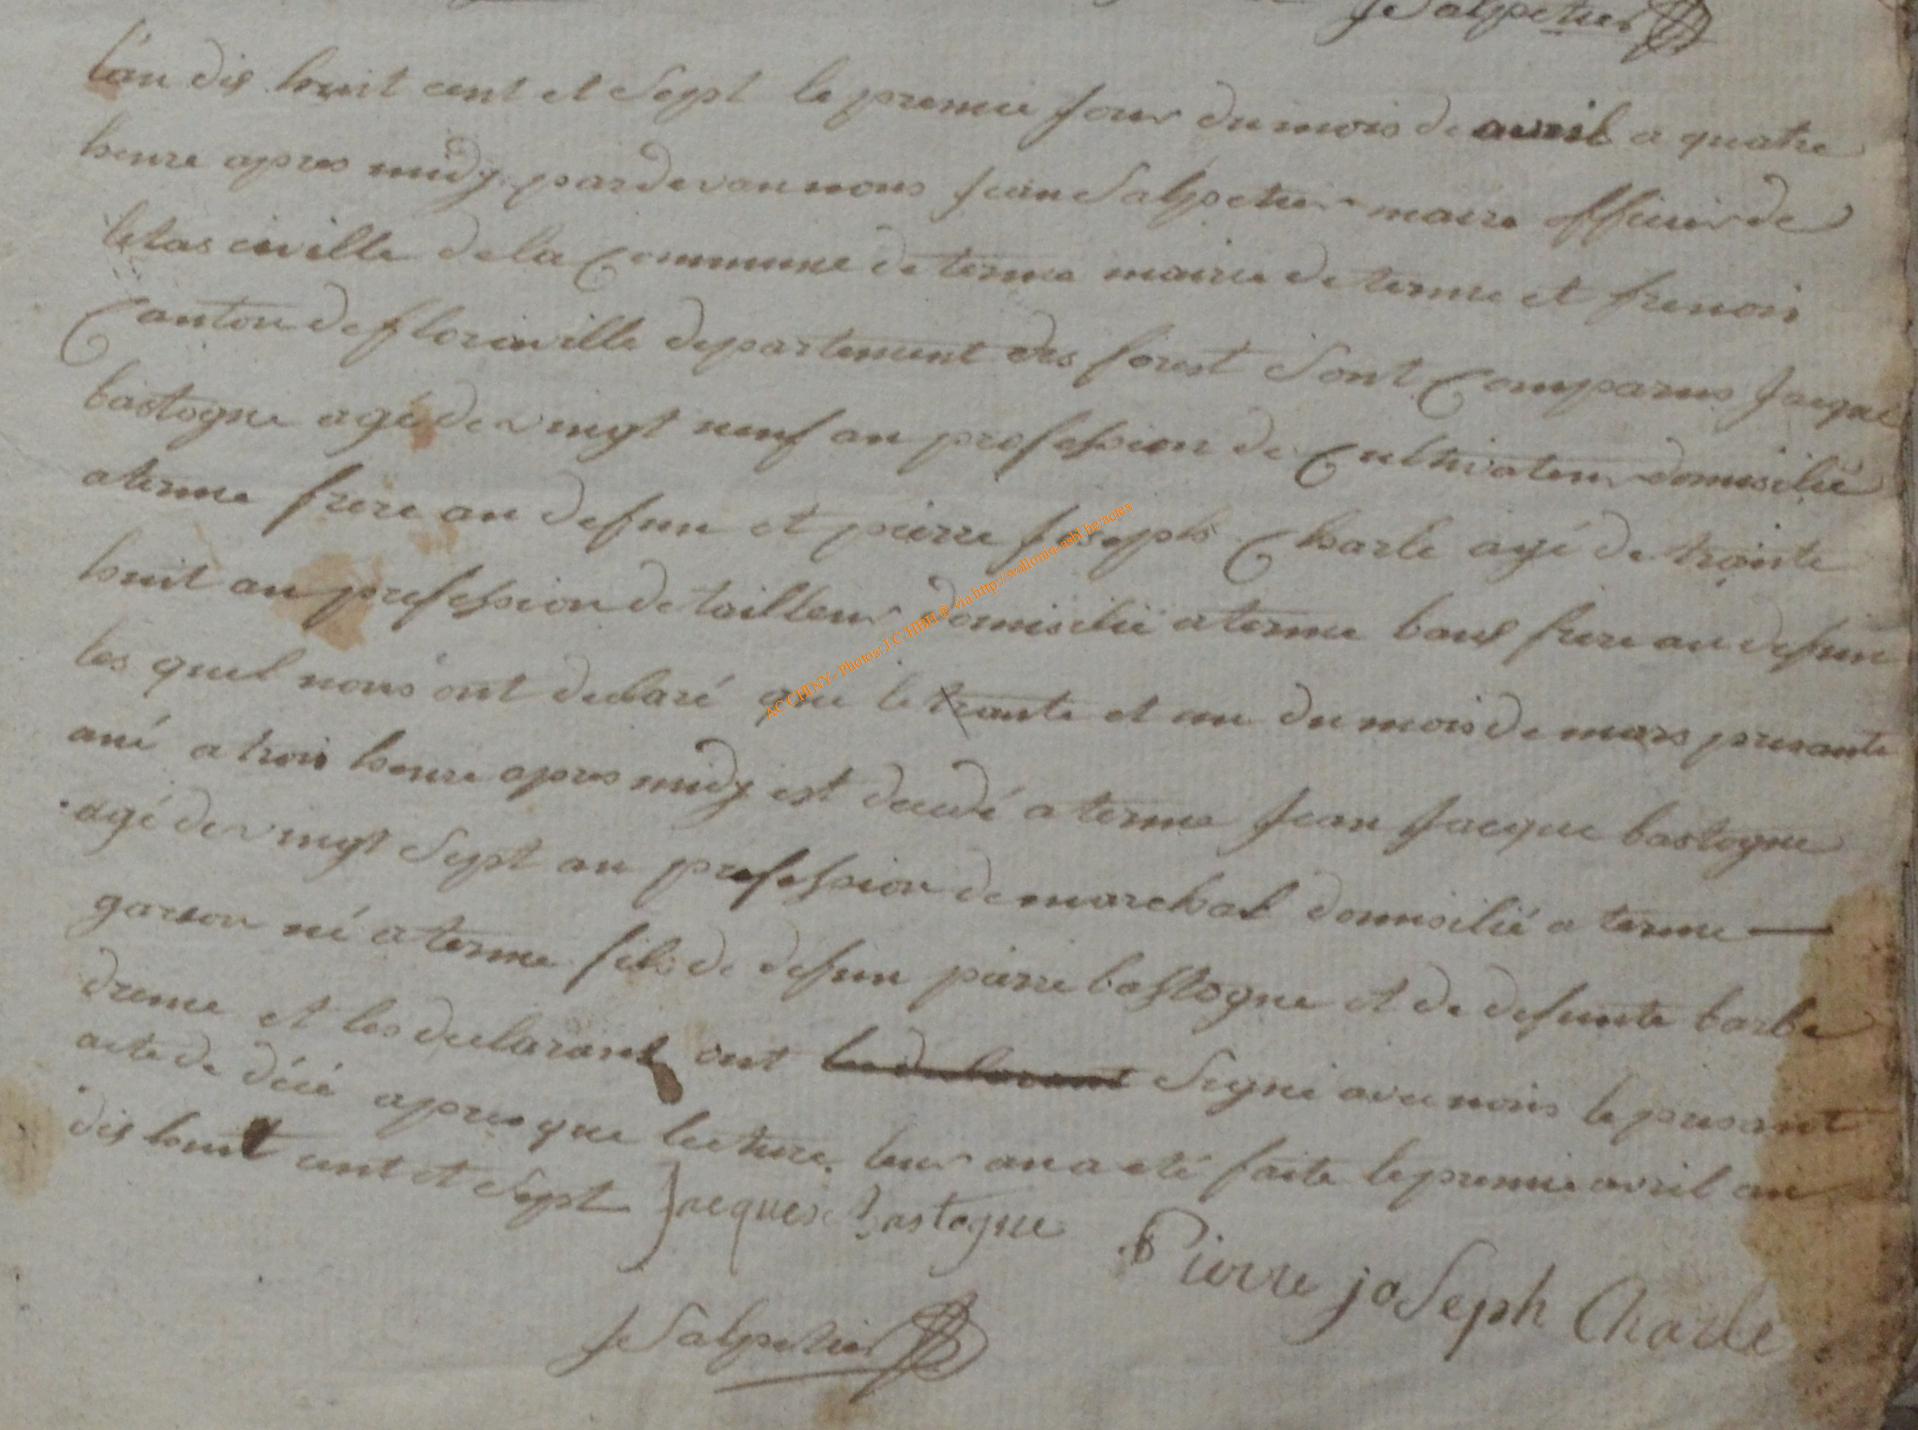 J Salpetier
l'an dix huit cent et Sept le premie Jour du mois de avril a quatre
heure apres midy pardevan nous Jean Salpetier maire officier de
letas civille de la Commune de terme mairie de terme et frenois
Canton de florainville departement des forest Sont Comparus Jacque
bastogne agé de vingt neuf an profession de Cultivateur domisilié
a terme frere au defun et pierre Joseph Charle agé de trante
huit an profession de tailleur domisilié a terme baux frere au defun
les quel nous ont declaré que le trante et un du mois de mars presante
ané a trois heure apres midy est decedé a terme Jean Jacque bastogne
agé de vingt Sept an profession de marchal domisilié a terme —
garson né a terme fils de defun pierre bastogne et de defunte barbe
dreme et les declarant ont les declarant Signé avec nous le presant
acte de décé apres que lecture leur an a eté faite le premie avril an
dix huit cent et Sept Jacques Bastogne
Pierre joSeph Charle
J Salpetier
AC CHINY - Photos J.C. HBH @ via http://wallonia-asbl.be/actes